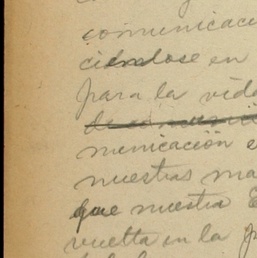 comunicaci
ciéndose en
para la vida
de comuni
municación e
nuestras ma
que nuestra
vuelta en la p